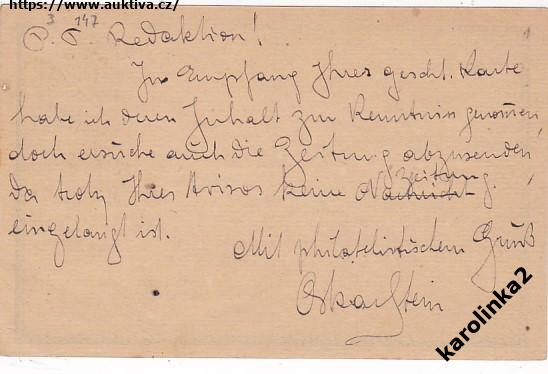 https://www.auktiva.cz/
3 147
P. T. Redaktion!
In Empfang Ihres gescht. Karte
habe ich deren Inhalt zur Kenntniss genommen,
doch ersuche auch die Zeitung abzusenden,
da trotz Ihres Avisos keine Nachricht Zeitung
eingelangt ist.
Mit philatelistischem Gruß
Oskar Stein
karolinka2